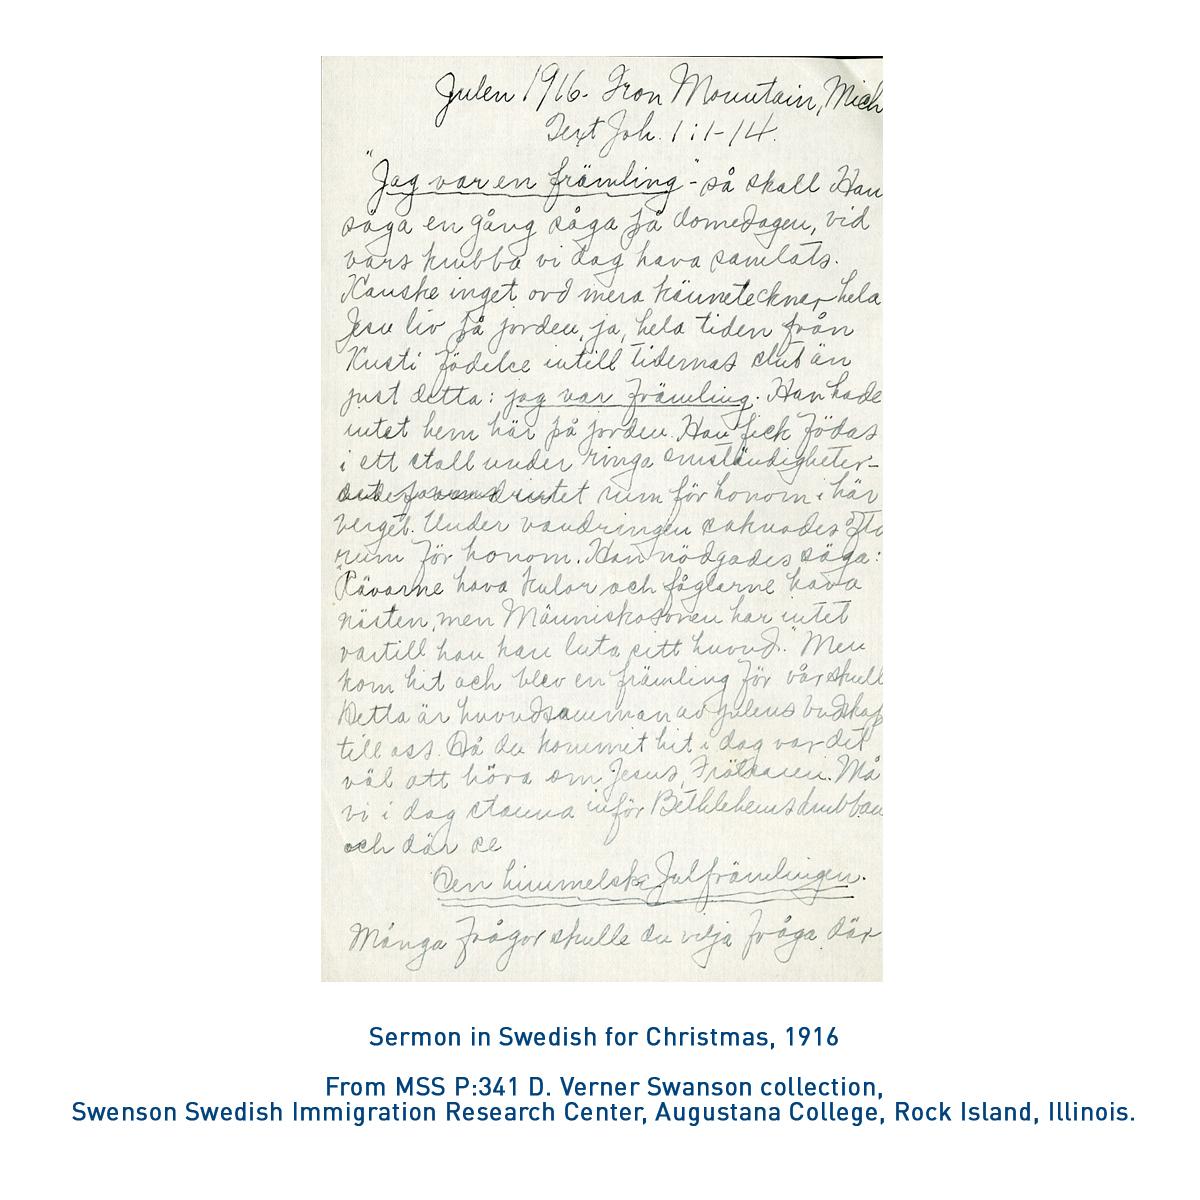 Julen 1916. Iron Mountain, Mich
Text Joh. 1:1-14.
"Jag var en främling" - så skall Han
säga en gång säga på domedagen, vid
vars krubba vi dag hava samlats.
Kanske inget ord mera kännetecknar hela
Jesu liv på jorden, ja, hela tiden från
Kristi födelse intill tidernas slut än
just detta: jag var främling. Han hade
intet hem här på jorden. Han fick födas
i ett stall under ringa omständigheter-
intet rum för honom i här
verget. Under vandringen saknades ofta
rum för honom. Han nödgades säga:
"Rävarne hava kulor och fåglarne hava
nästen, men Människosonen har intet
vartill han kan luta sitt huvud." Men
kom hit och blev en främling för vår skull
Detta är huvudsumman av julens budskap
till oss. Då du kommit hit i dag var det
väl att höra om Jesus, Frälsaren. Må
vi i dag stanna inför Bethlehemskrubban
och där se
Den himmelske Julfrämlingen.
Många frågor skulle du vilja fråga där
Sermon in Swedish for Christmas, 1916
From MSS P:341 D. Verner Swanson collection,
Swenson Swedish Immigration Research Center, Augustana College, Rock Island, Illinois.